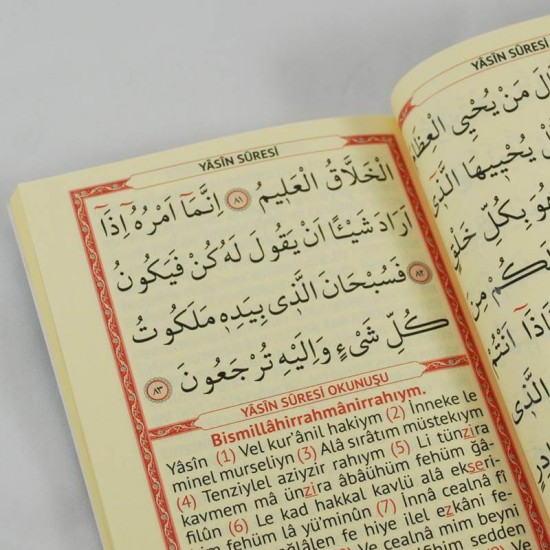 YÂSÎN SÛRESİ
الْخَلَّاقُ الْعَلٖيمُ ﴿٨١﴾ اِنَّمَٓا اَمْرُهُٓ اِذَٓا
اَرَادَ شَيْـًٔا اَنْ يَقُولَ لَهُ كُنْ فَيَكُونُ
﴿٨٢﴾ فَسُبْحَانَ الَّذٖي بِيَدِهٖ مَلَكُوتُ
كُلِّ شَيْءٍ وَاِلَيْهِ تُرْجَعُونَ ﴿٨٣﴾
YÂSÎN SÛRESİ OKUNUŞU
Bismillâhirrahmânirrahıym.
Yâsîn (1) Vel kur'ânil hakiym (2) İnneke le
minel murseliyn (3) Alâ sırâtım müstekıym
(4) Tenziylel aziyzir rahıym (5) Li tünzira
kavmem mâ ünzira âbâühüm fehüm ğâ-
filûn (6) Le kad hakkal kavlü alâ ekseri-
him fehüm lâ yü'minûn (7) İnnâ cealnâ fî
ğlâlen fe hiye ilel ezkâni fe-
Ve cealnâ mim beyni
him sedden
YÂSÎN SÛRESİ
مَنْ يُحْيِي
يُحْيٖيهَا الَّذٖٓي
بِكُلِّ
اَنْتُمْ
الَّذٖي